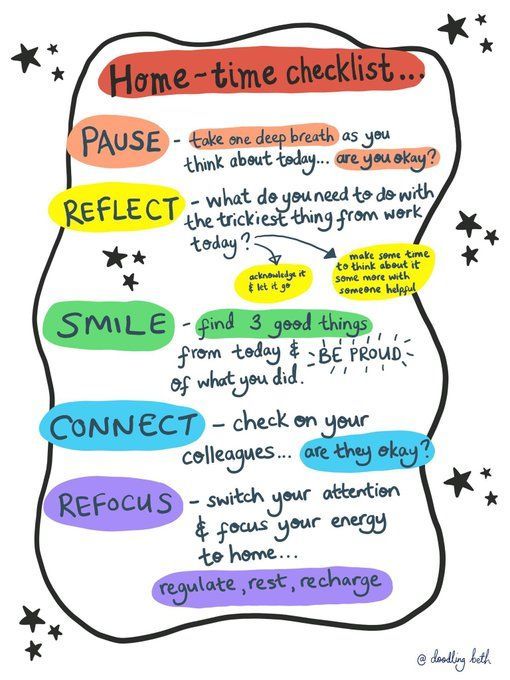 Home-time checklist...
PAUSE - take one deep breath as you
think about today... are you okay?
REFLECT - what do you need to do with
the trickiest thing from work
today?
acknowledge it
& let it go
make some time
to think about it
some more with
someone helpful
SMILE - find 3 good things
from today & BE PROUD
of what you did.
CONNECT - check on your
colleagues... are they okay?
REFOCUS - switch your attention
& focus your energy
to home...
regulate, rest, recharge
@ doodling beth